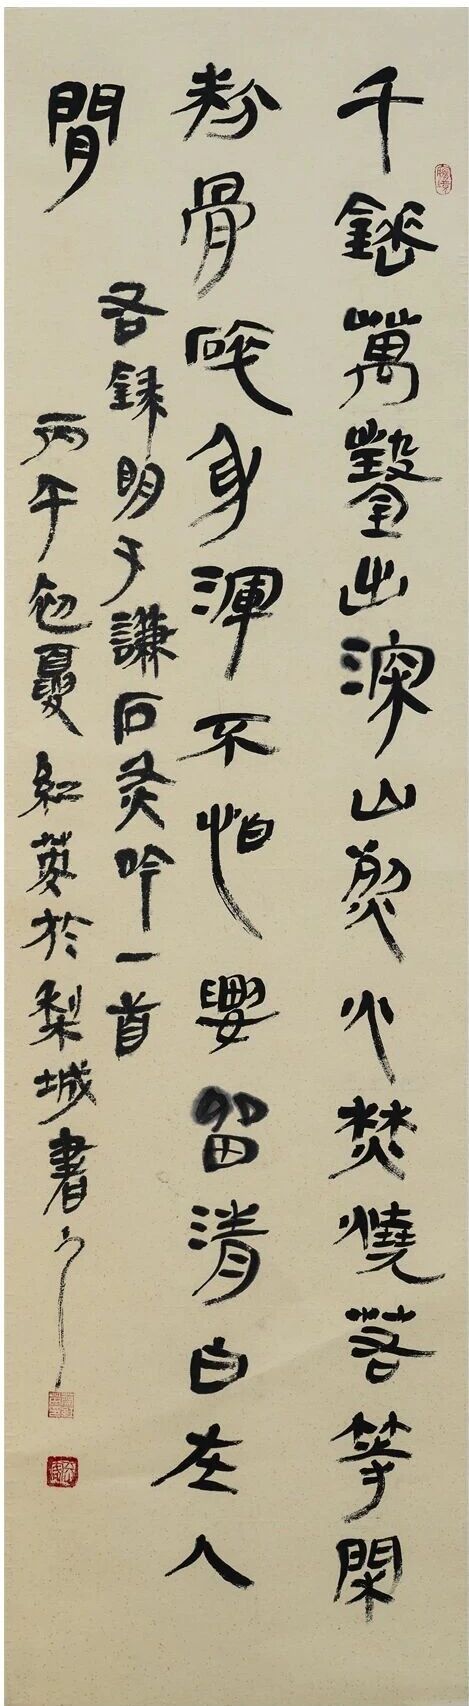 千錘萬鑿出深山烈火焚燒若等閑
粉骨碎身渾不怕要留清白在人
間
右錄明于謙石灰吟一首
丙午初夏紅英於梨城書